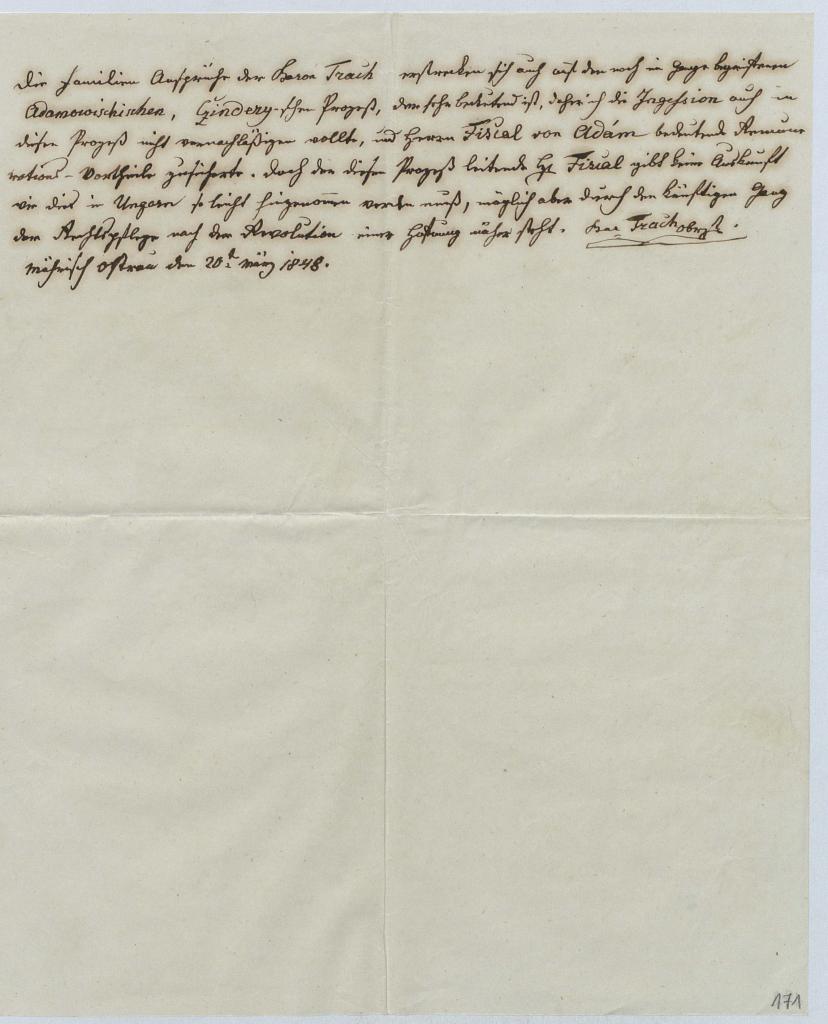 Die Familien Ansprüche der Baron Trach erstrecken sich auch auf den noch im Gange begriffenen
Adamowischischen, Czindery-schen Prozeß, der sehr bedeutend ist, daher ich die Ingession auch in
diesen Prozeß nicht vernachläßigen wollte, und Herrn Fiscal von Adám bedeutende Remune
rations-Vortheile zusicherte. Doch der diesen Prozeß leitende Hr Fiscal gibt keine Auskunft
wie dies in Ungarn so leicht hingenommen werden muß, möglich aber durch den künftigen Gang
der Rechtspflege nach der Revolution einer Hoffnung näher steht. Bar Trach Oberst.
Mährisch Ostrau den 20t März 1848.
171